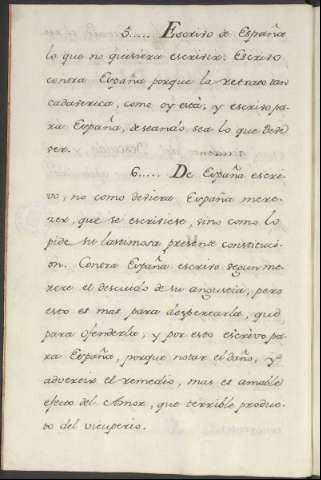 5..... Escrivo de España
lo que no quisiera escrivir. Escrivo
contra España porque la retrato tan
cadaverica, como oy està; y escrivo pa-
ra España, deseando sea lo que deve
ser.
6..... De España escri-
vo, no como deviera España mere-
zer, que se escriviese, sino como lo
pide su lastimosa presente constituci-
on. Contra España escrivo segun me-
rece el descuido de su angustia, pero
esto es mas para despertarla, que
para ofenderla; y por esto escrivo pa-
ra España, porque notar el daño, y
advertir el remedio, mas es amable
efecto del Amor, que terrible produc-
to del vituperio.